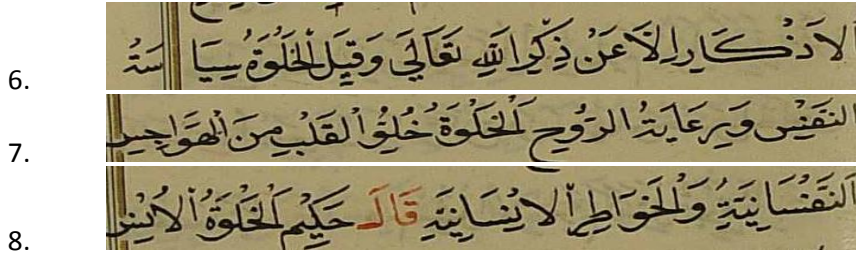 6. الاَذْكَارِ اِلَّا عَنْ ذِكْرِ اللهِ تَعَالَى وَقِيلَ الْخَلْوَةُ سِيَاسَةُ
7. النَّفْسِ وَرِعَايَةُ الرُّوحِ اَلْخَلْوَةُ خُلُوُّ الْقَلْبِ مِنَ الْهَوَاجِسِ
8. النَّفْسَانِيَّةِ وَالْخَوَاطِرِ الْاِنْسَانِيَّةِ قَالَ حَكِيمٌ اَلْخَلْوَةُ الْاُنْسُ